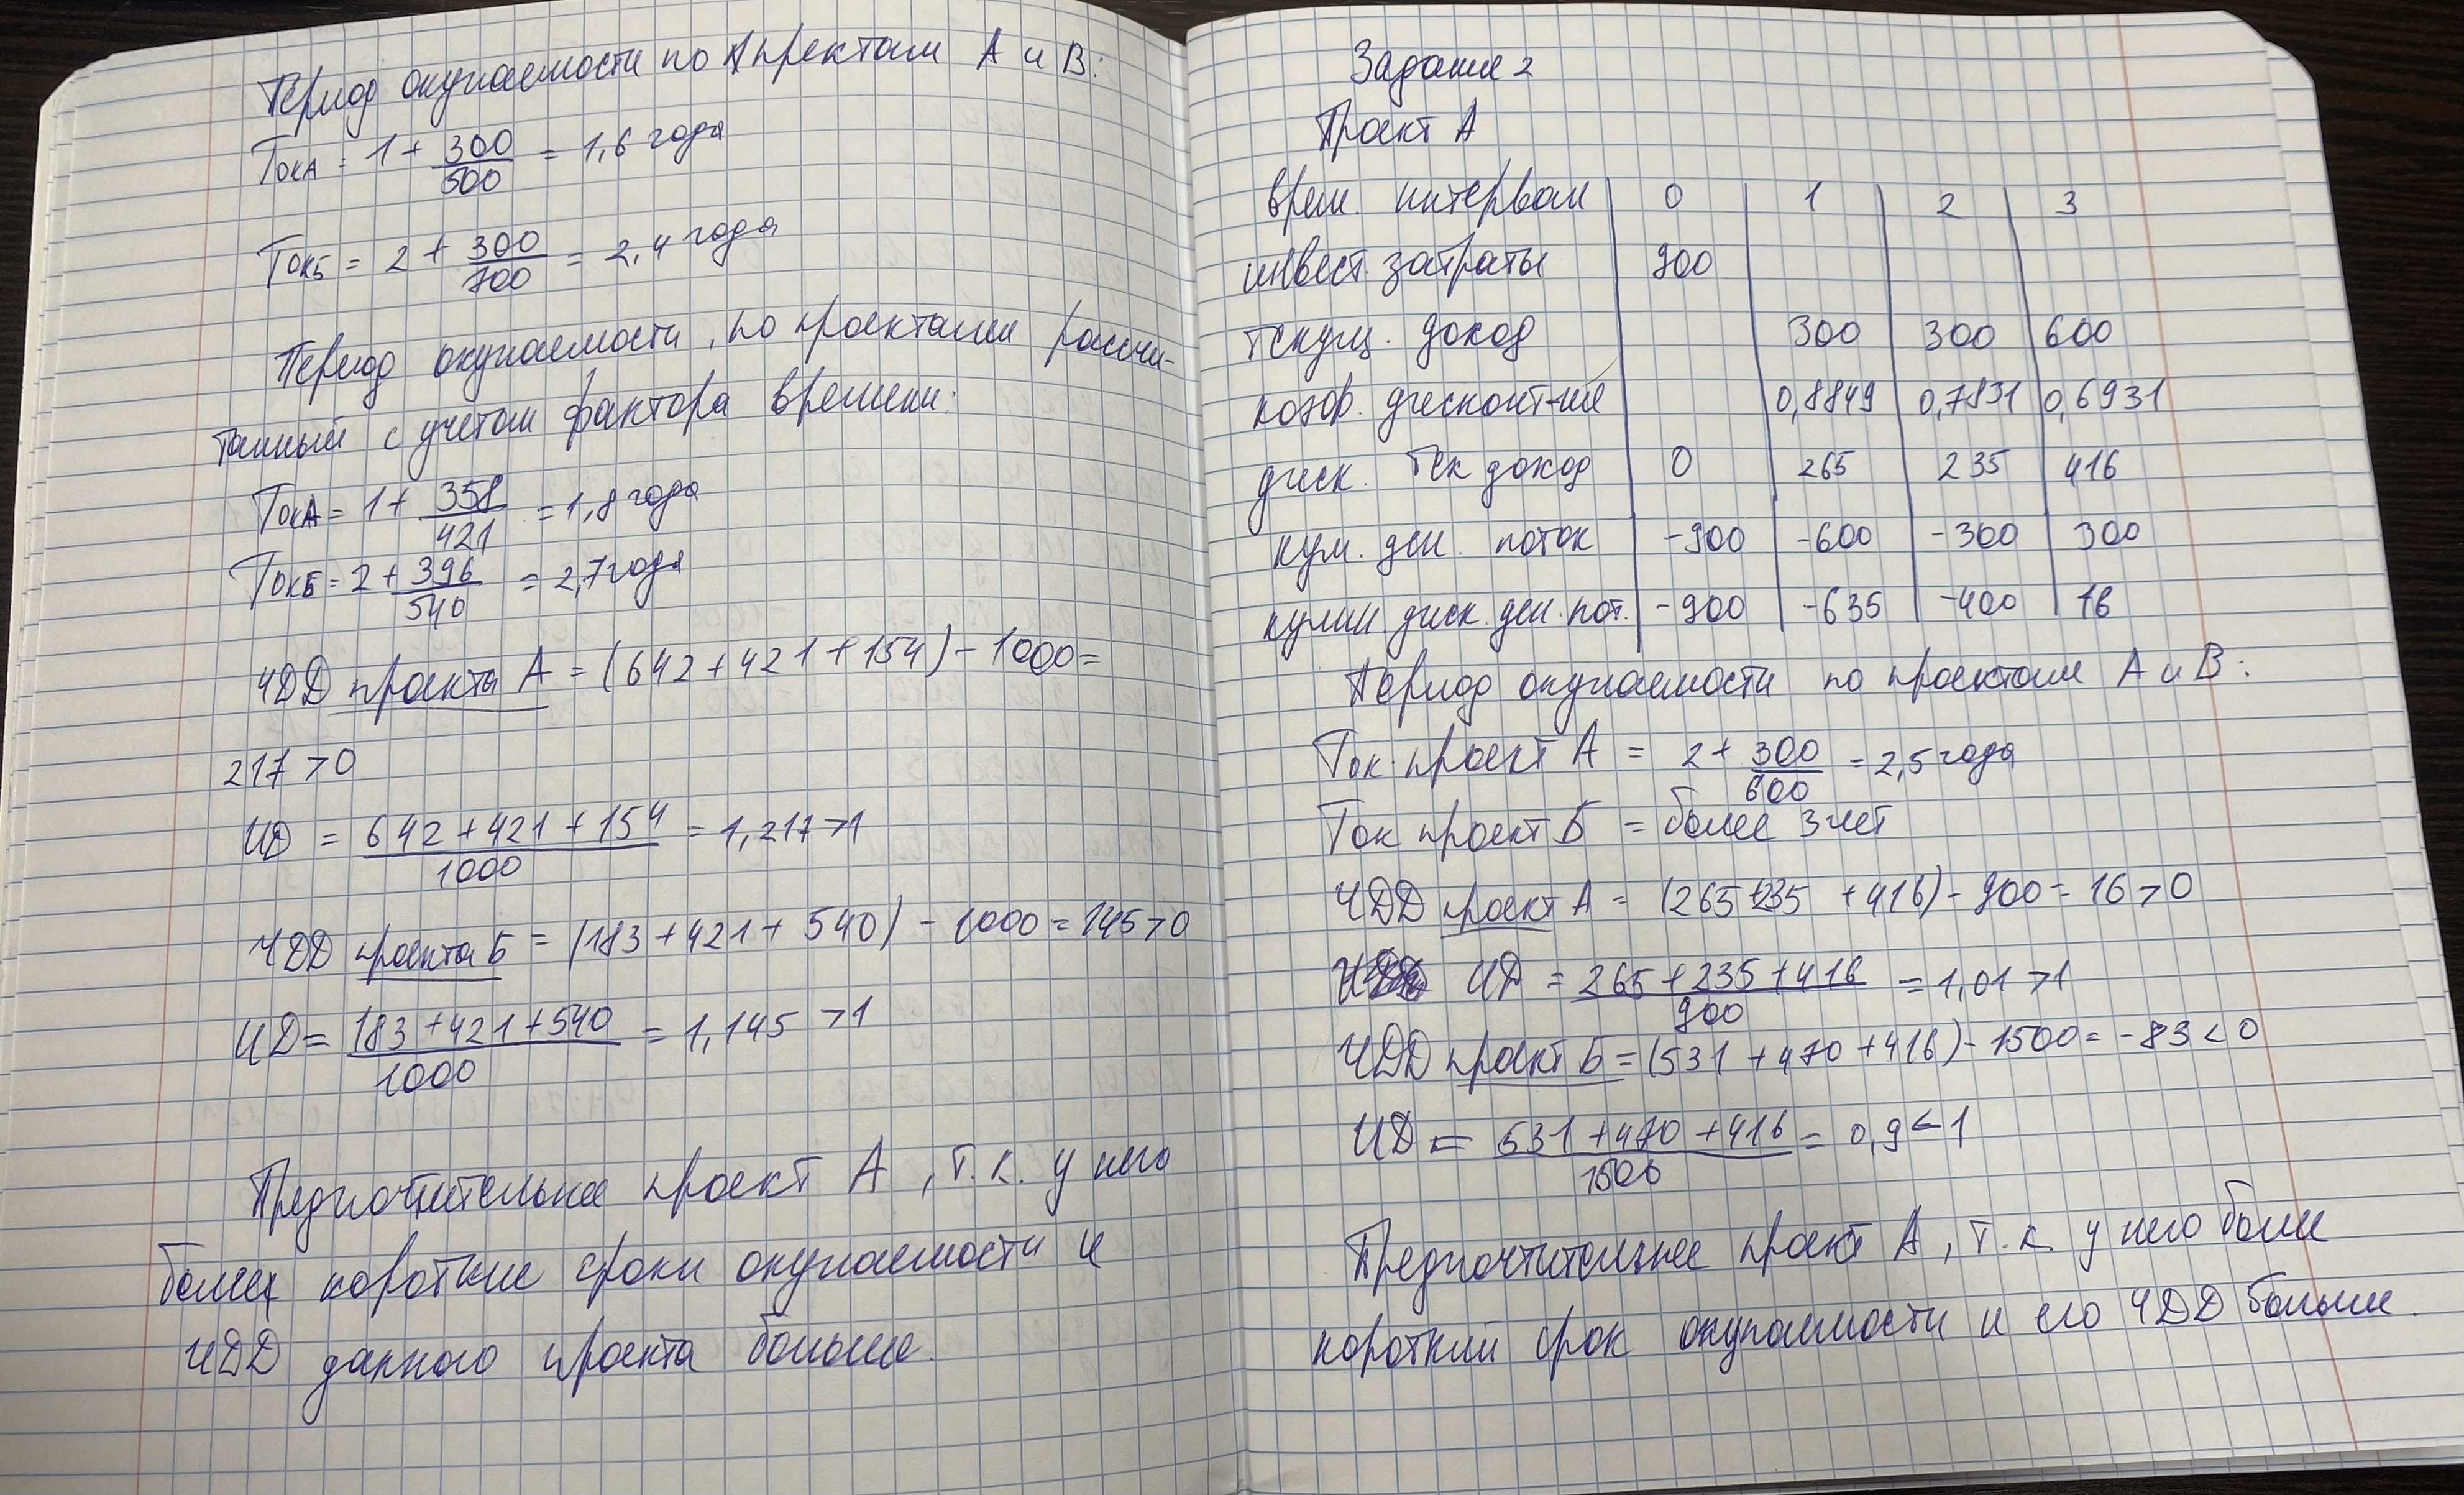 Период окупаемости по проектам А и В:
Ток А = 1 + 300/500 = 1,6 года
Ток Б = 2 + 300/700 = 2,4 года
Период окупаемости, по проектам рассчи-
танный с учетом фактора времени:
Ток А = 1 + 358/421 = 1,8 года
Ток Б = 2 + 396/540 = 2,7 года
ЧДД проекта А = (642 + 421 + 154) - 1000 =
217 > 0
ИД = 642 + 421 + 154/1000 = 1,217 > 1
ЧДД проекта Б = (183 + 421 + 540) - 1000 = 145 > 0
ИД = 183 + 421 + 540/1000 = 1,145 > 1
Предпочтительнее проект А, т.к. у него
более короткие сроки окупаемости и
ЧДД данного проекта больше.
Задание 2
Проект А
Врем. интервал 0 1 2 3
инвест. затраты 900
текущ. доход 300 300 600
коэф. дисконт-ия 0,8849 0,7831 0,6931
диск. тек доход 0 265 235 416
кум. ден. поток -900 -600 -300 300
кумил. диск. ден. пот. -900 -635 -400 16
Период окупаемости по проектам А и В:
Ток. проект А = 2 + 300/600 = 2,5 года
Ток проект Б = более 3 лет
ЧДД проект А = (265 + 235 + 416) - 900 = 16 > 0
ИД = 265 + 235 + 416/900 = 1,01 > 1
ЧДД проект Б = (531 + 470 + 416) - 1500 = -83 < 0
ИД = 531 + 470 + 416/1500 = 0,9 < 1
Предпочтительнее проект А, т.к. у него более
короткий срок окупаемости и его ЧДД больше.